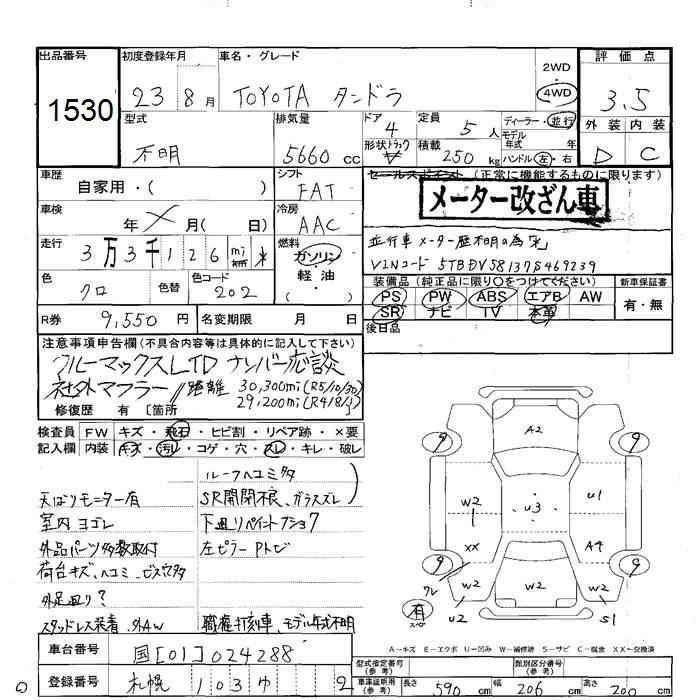 出品番号 初度登録年月 車名・グレード 評価点
1530 23 8月 TOYOTA タンドラ 2WD 4WD 3.5
型式 排気量 ドア 定員 ディーラー・並行 外装 内装
不明 5660 cc 4 5人 モデル年式 年 D C
形状 トラック 積載 250 kg ハンドル 左・右
車歴 シフト セールスポイント (正常に機能するものに限ります)
自家用・( ) FAT メーター改ざん車
車検 冷房
年 × 月( 日) AAC 並行車 メーター歴不明の為「米」
走行 3万3千126 mi 燃料 ガソリン・軽油・( )
VINコード 5TBDV58137S469239
色 色替 色コード 装備品(純正品に限り○をつけてください) 新車保証書
クロ 202 PS PW ABS エアB AW 有・無
SR ナビ TV 本革
R券 9,550円 名変期限 月 日 後日品
注意事項申告欄(不具合内容等は具体的に記入して下さい)
クルーマックスLTD ナンバー応談
社外マフラー // 距離 30,300mi(R5/10/30)
29,200mi(R4/8/1)
修復歴 有 〔箇所
検査員 FW キズ・飛石・ヒビ割・リペア跡・×要
記入欄 内装 キズ・汚レ・コゲ・穴・スレ・キレ・破レ
ルーフヘコミ多
天ばりモニター有 SR開閉不良、ガラスズレ
室内ヨゴレ 下廻りペイントアショ7
外品パーツ多数取付 左ピラーPトビ
荷台キズ、ヘコミ、ビス穴多
外足廻り?
スタッドレス装着、外AW 職権打刻車、モデル年式不明
9 A2 9
W2 u3 u1
XX A4
9 W2 W2 W2 9
有 スペア u2 S1
A-キズ E-エクボ U-凹み W-補修跡 S-サビ C-腐食 XX-交換済
車台番号 国[01]024288 型式指定番号(参考) 類別区分番号(参考)
登録番号 札幌 103 ゆ 2 車庫証明用(参考) 長さ 590cm 幅 206cm 高さ 200cm